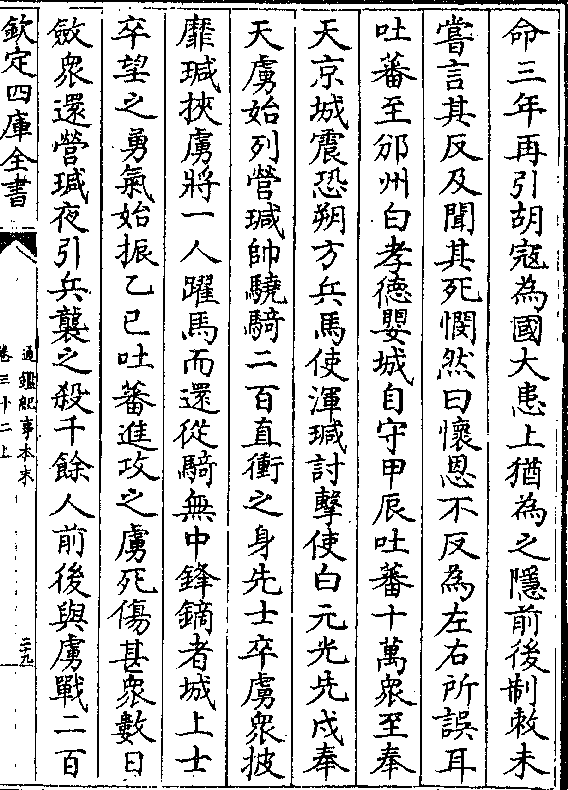 命三年再引胡寇為國大患上猶為之隱前後制敕未
嘗言其反及聞其死憫然曰懷恩不反為左右所誤耳
吐蕃至邠州白孝德嬰城自守甲辰吐蕃十萬衆至奉
天京城震恐朔方兵馬使渾瑊討擊使白元光先戍奉
天虜始列營瑊帥驍騎二百直衝之身先士卒虜衆披
靡瑊挾虜將一人躍馬而還從騎無中鋒鏑者城上士
卒望之勇氣始振乙巳吐蕃進攻之虜死傷甚衆數日
斂衆還營瑊夜引兵襲之殺千餘人前後與虜戰二百
欽定四庫全書
通鑑紀事本末
卷三十二上
二十九